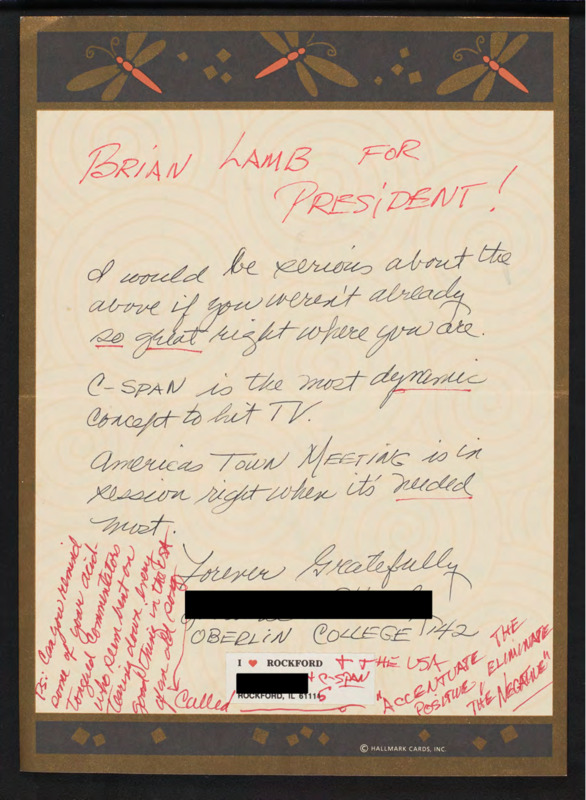 BRIAN LAMB FOR
PRESIDENT!
I would be serious about the
above if you weren't already
so great right where you are.
C-SPAN is the most dynamic
concept to hit TV.
Americas TOWN MEETING is in
session right when it's needed
most.
Forever Gratefully
OBERLIN COLLEGE '42
I ♥ ROCKFORD + THE USA
+ C-SPAN
ROCKFORD, IL 6111
Ps: Can you remind
some of your acid-
Tongued Commentators
who seem bent on
tearing down every
good thing in the
of an old song
Called
"ACCENTUATE THE
POSITIVE, ELIMINATE
THE NEGATIVE"
© HALLMARK CARDS, INC.